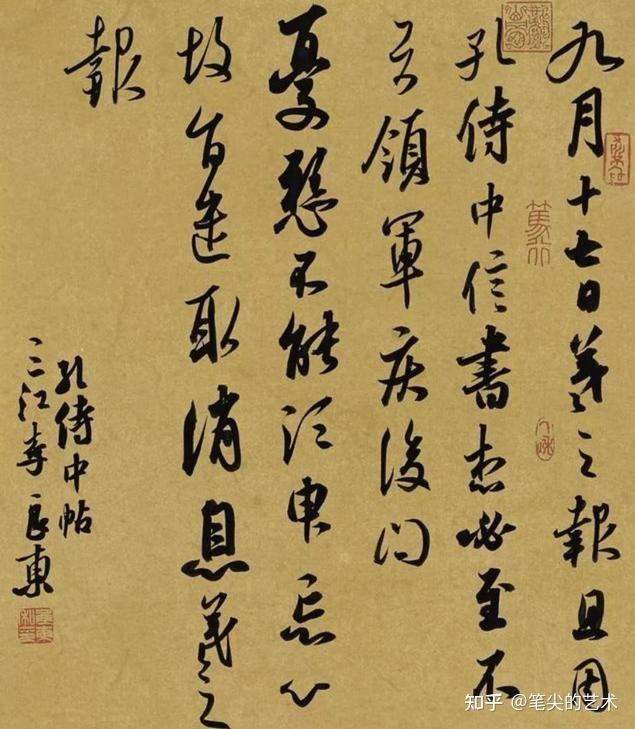 九月十七日羲之報且因
孔侍中信書想必至不
知領軍疾後問
憂懸不能須臾忘心
故旨遣取消息羲之
報
孔侍中帖
三江李良東
知乎 @笔尖的艺术